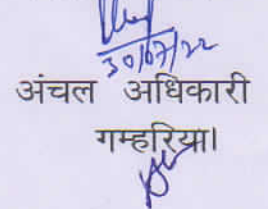 30/07/22
अंचल अधिकारी
गम्हरिया।